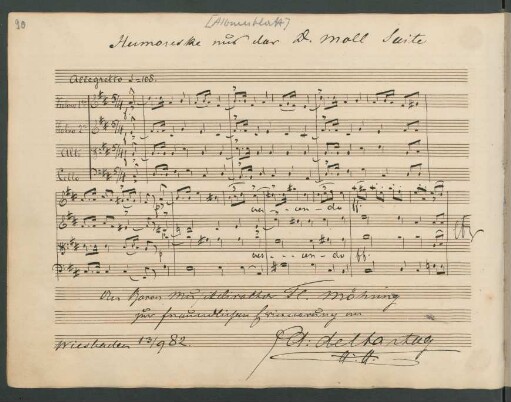 90
[Albumblatt]
Humoreske aus der D. moll Suite
Allegretto ♩=108.
Violino 1º
Violino 2º
Alto
Cello
cres - cen - do ff.
cres - cen - do ff.
Dem Herrn Musikdirektor F. Möhring
zur freundlichen Erinnerung an
Wiesbaden 13/9 82.
Ed. de Hartog